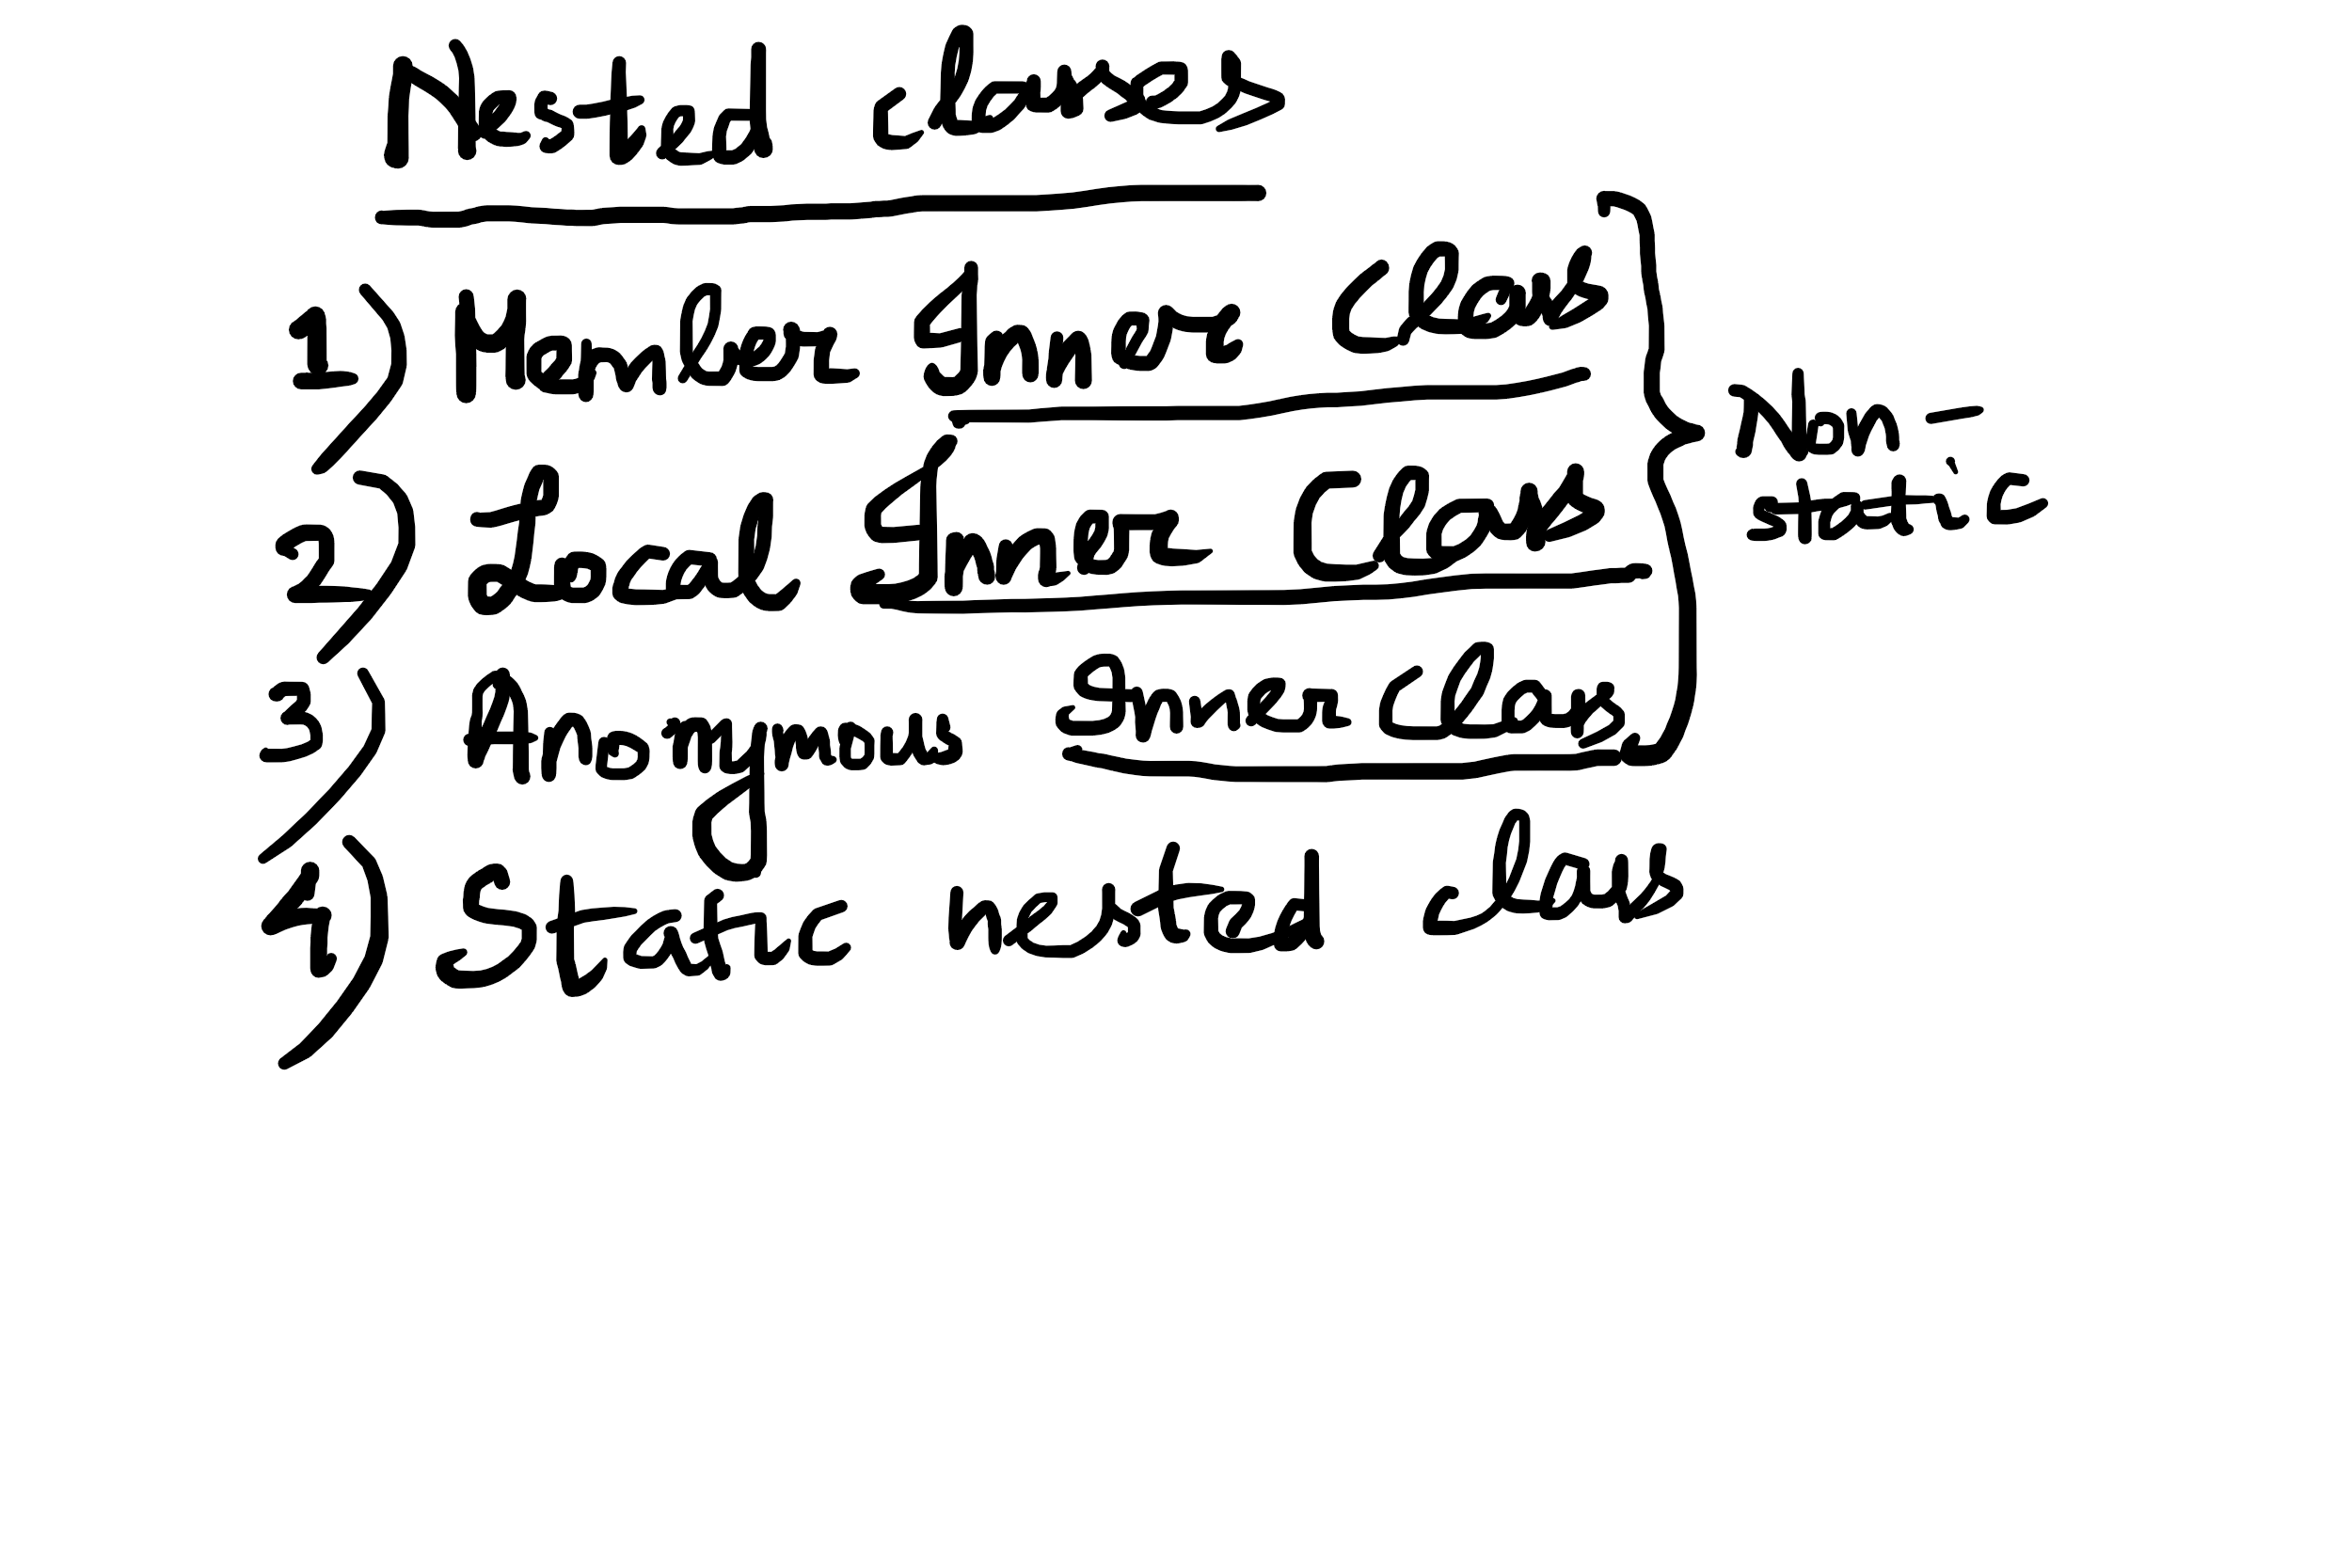 Nested classes
1) Member Inner Class
2) Local Inner Class
3) Anonymous Inner Class
4) Static nested class
Non-
static